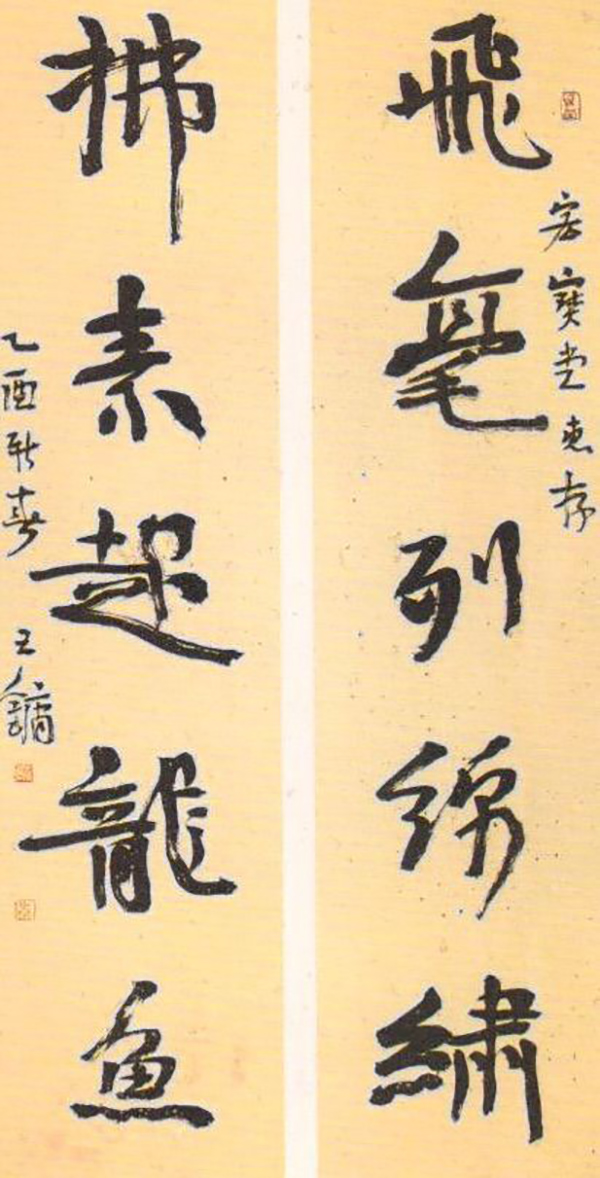 飛毫列錦繡
宏寶堂惠存
拂素起龍魚
乙酉新春 王鏞